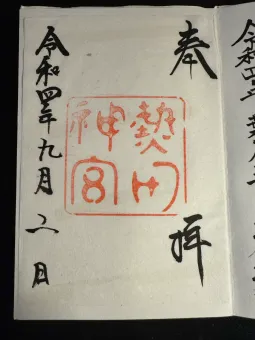 奉拝
熱田
神宮
令和四年九月六日